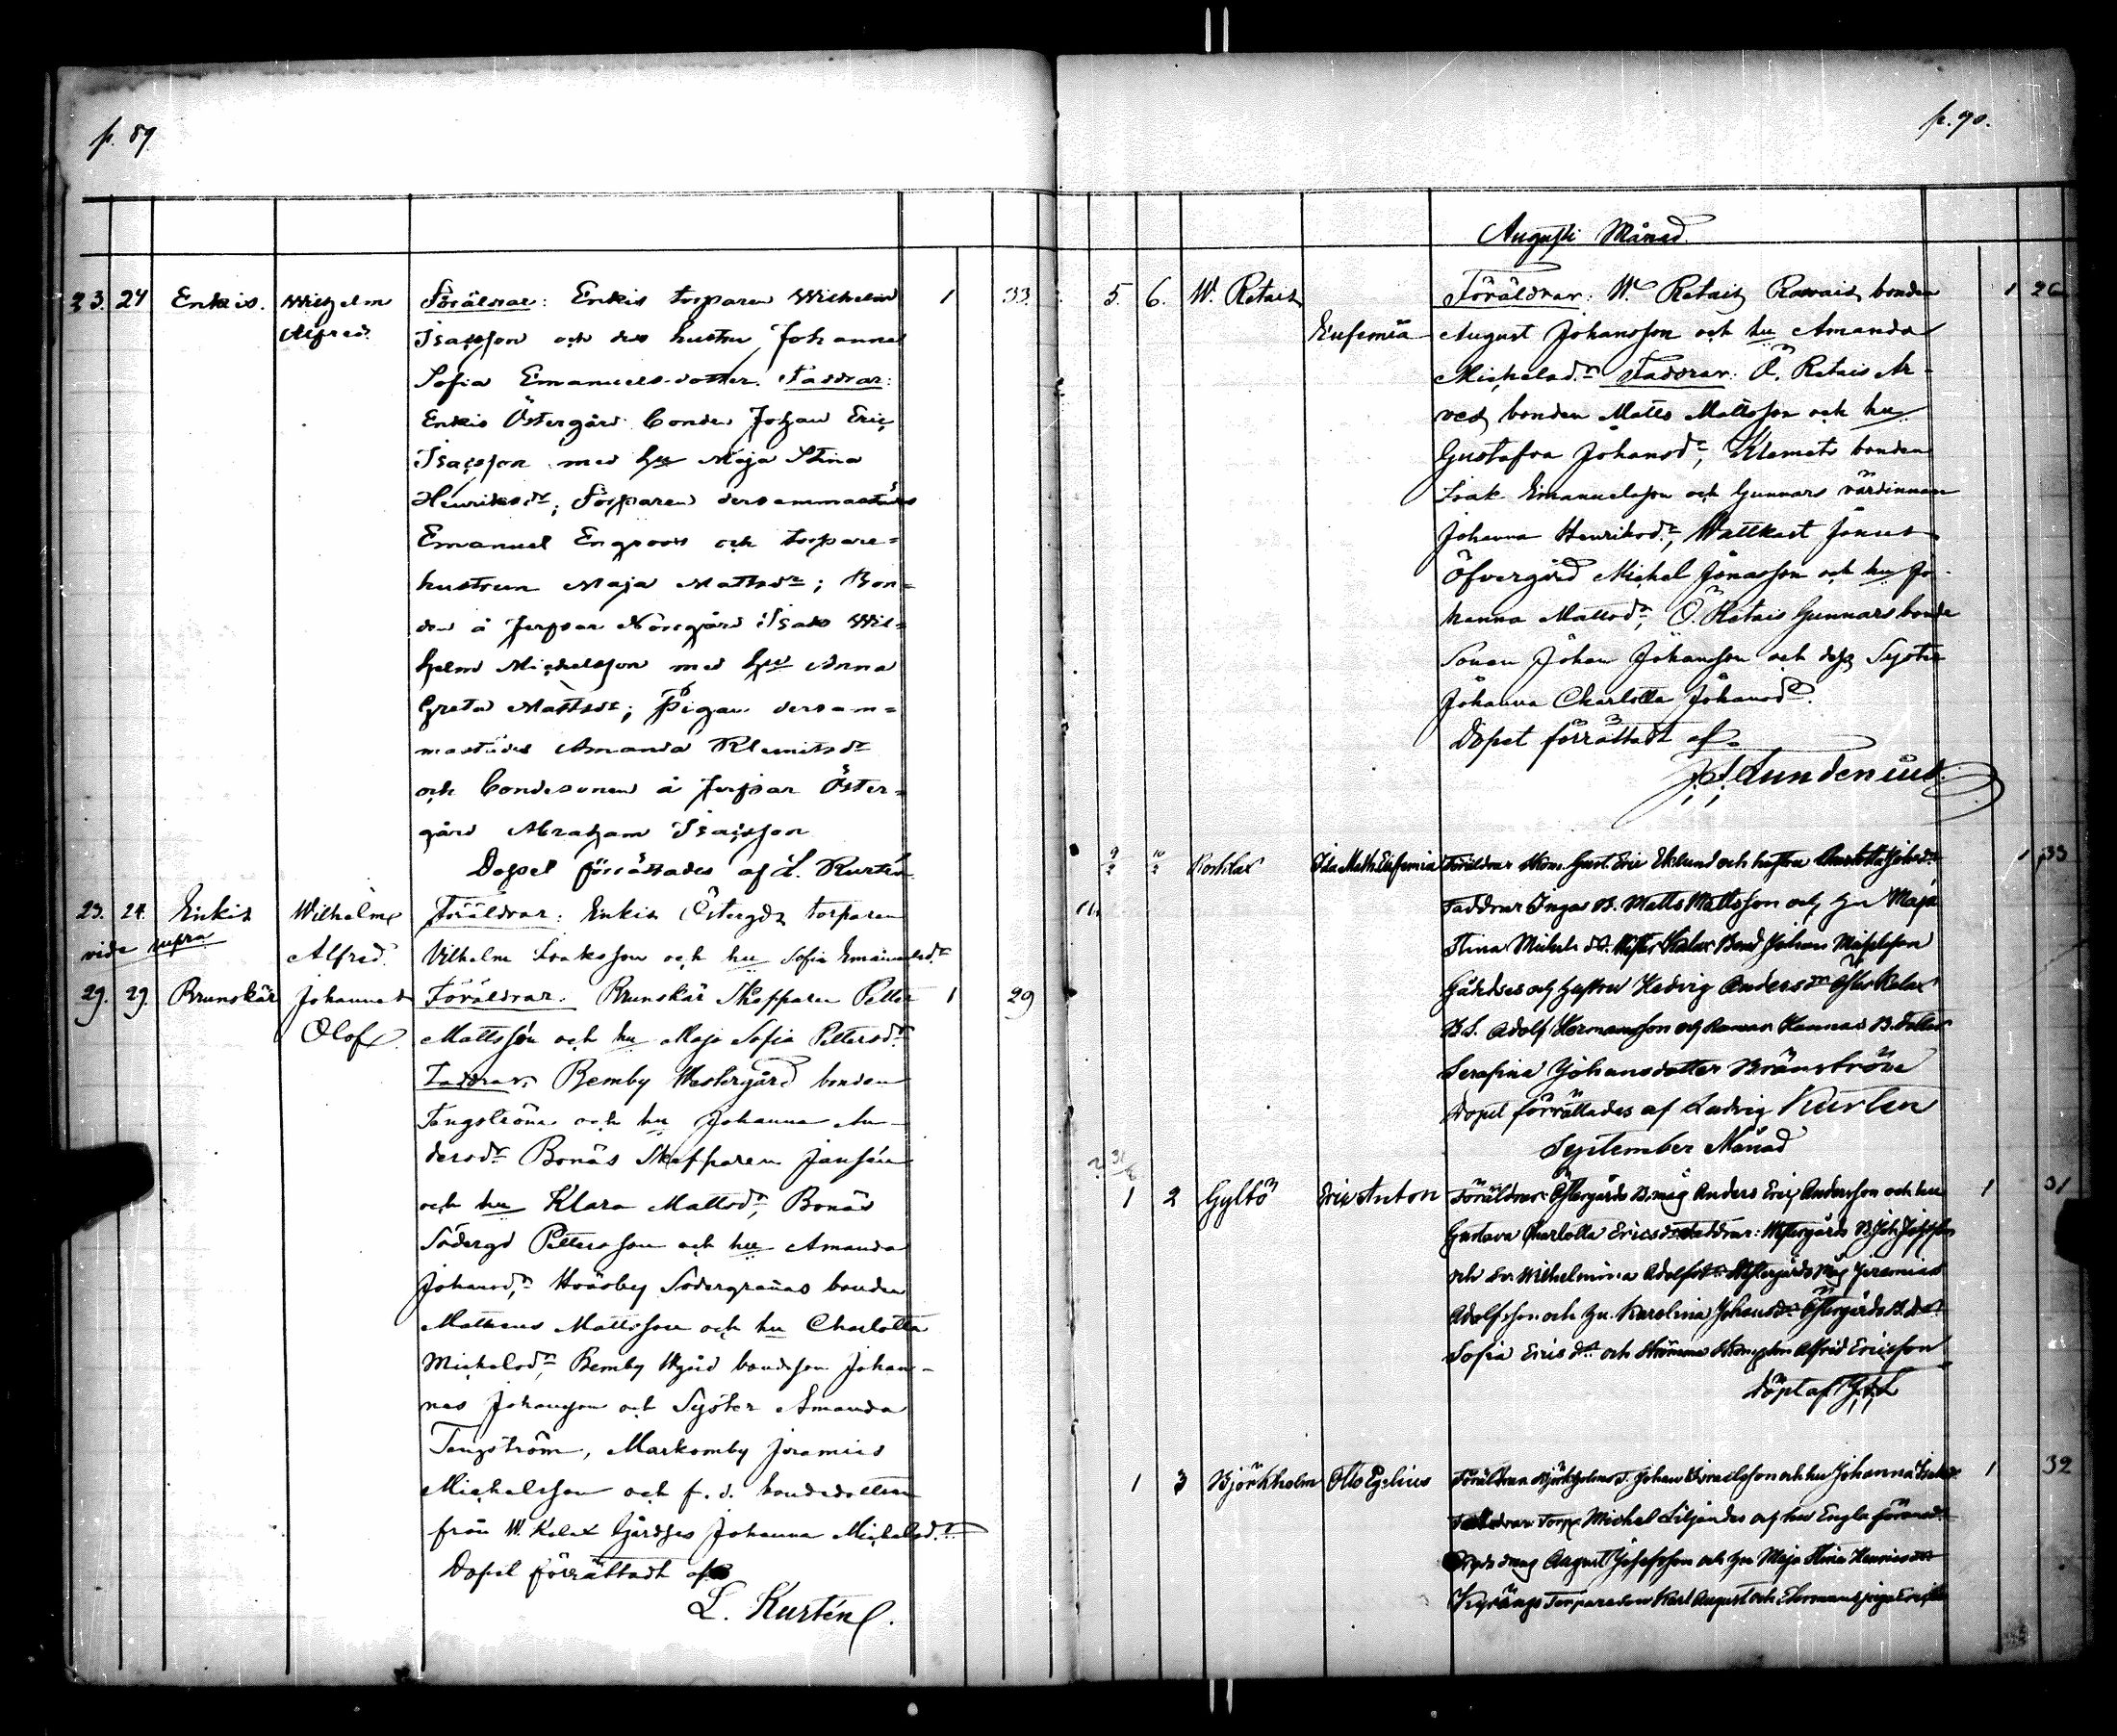 p. 89.
23. 24 Enkis. Wilhelm Föräldrar: Enkis torparen Wilhelm 1 33.
Alfred. Isacsson och dess hustru Johanna
Sofia Emanuels-dotter. Faddrar:
Enkis Östergård bonden Johan Eric
Isacsson med hu Maja Stina
Henriksdr; Torparen dersammastädes
Emanuel Engroos och torpare-
hustrun Maja Mattsdr; Bon-
den å Jerpsar Norrgård Isak Wil-
helm Michelsson med hu Anna
Greta Mattsdr; Pigan dersam-
mastädes Amanda Klemitsdr
och bondesonen å Jerpsar Öster-
gård Abraham Isacsson
Dopet förrättades af L. Kurtén
23. 24. Enkis Wilhelm Föräldrar: Enkis Östergds torparen
vide supra Alfred. Vilhelm Isaksson och hu Sofia Emanuelsd.r
29. 29. Brunskär Johannes Föräldrar. Brunskär Skepparen Petter 1 29
Olof. Mattsson och hu Maja Sofia Pettersd.r
Faddrar. Bemby Westergård bonden
Tengström och hu Johanna An-
dersd.r Bonäs Skepparen Jansén
och hu Klara Mattsd.r, Bonäs
Södergd Pettersson och hu Amanda
Johansd.r, Hväsby Södergrannas bonden
Matheus Mattsson och hu Charlotta
Michelsd.r, Bemby Wgård bondeson Johan-
nes Johansson och Syster Amanda
Tengström, Markomby Jeremias
Michelsson och f. d. bondedottren
från W. Kelax Gårdses Johanna Michelsd.r
Dopet förrättadt af
L. Kurtén.
p. 90.
Augusti Månad.
5. 6. W. Retais Föräldrar: W. Retais Rawais bonden 1 26
Eufemia August Johansson och hu Amanda
Michelsd.r Faddrar: Ö. Retais Ar-
ved bonden Matts Mattsson och hu
Gustafva Johansd.r, Klemets bonden
Isak Emanuelsson och Gunnars värdinnan
Johanna Henriksd.r, Wattkast Jönses
Öfvergård Michel Jonasson och hu Jo-
hanna Mattsd.r, Ö. Retais Gunnars bonde
Sonen Johan Johansson och dess Syster
Johanna Charlotta Johansd.r
Dopet förrättadt af
Sundenius.
9 10 Ida Math. Eufemia Föräldrar Gust. Eric Eklund och hustru 1 33
Faddrar Ingas B. Matts Mattsson och hu Maja
Stina Michels dr. Wester Kelax Bond Johan
Gårdses och hustru Hedvig Anders dr Öster Kelax
B.S. Adolf Hermansson och Hannas B. dotter
Serafina Johansdotter Brännström
Dopet förrättades af Ludvig Kurtén
September Månad
? 31/8
1 2 Gyltö Eric Anton Föräldrar Östergårds B. måg Anders Eric Andersson och hu 1 31
Gustava Charlotta Ericsdr Faddrar: Westergårds B. Joh.
och hu Wilhelmina Westergårds Måg Jeremias
Adolfsson och hu Karolina Johansdr Östergårds B. dr
Sofia Erics dr och Alfrid Ericsson
Döpt af
1 3 Björkholm Otto Egelius Föräldrar Björkholms T. Johan Israelsson och hu Johanna 1 32
Faddrar Torp. Michel Liljendes och hu Engla
dräng August Josefsson och hu Maja Stina Henricsdr
Torparesson Karl August och